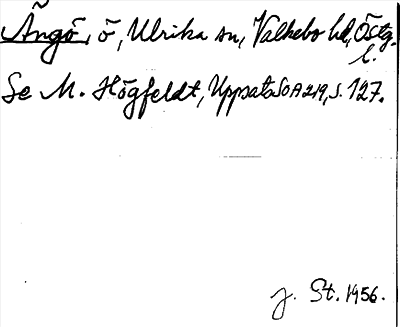 Ängö, ö, Ulrika sn, Valkebo hd, Östg.
l.
Se M. Högfeldt, Uppsats SOA 219, s. 127.
J. St. 1956.